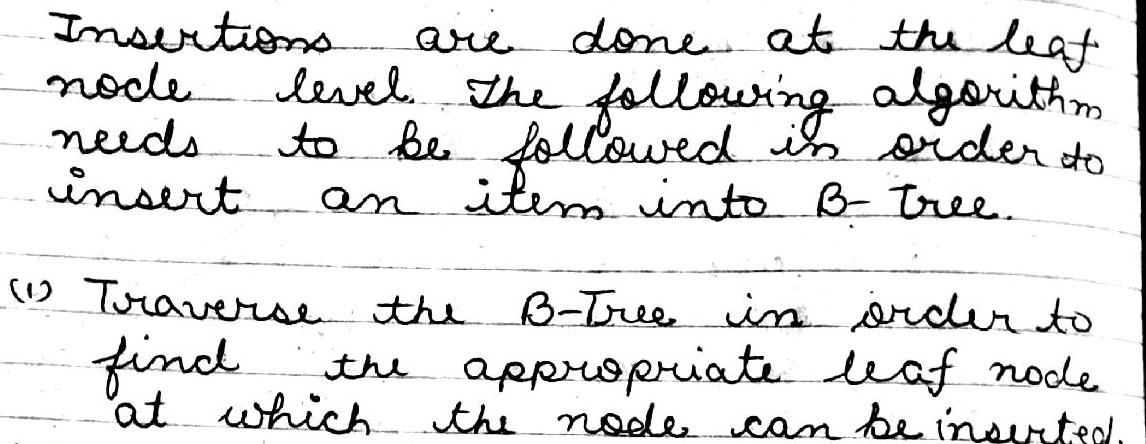 Insertions are done at the leaf
node level. The following algorithm
needs to be followed in order to
insert an item into B-Tree.
(1) Traverse the B-Tree in order to
find the appropriate leaf node
at which the node can be inserted.